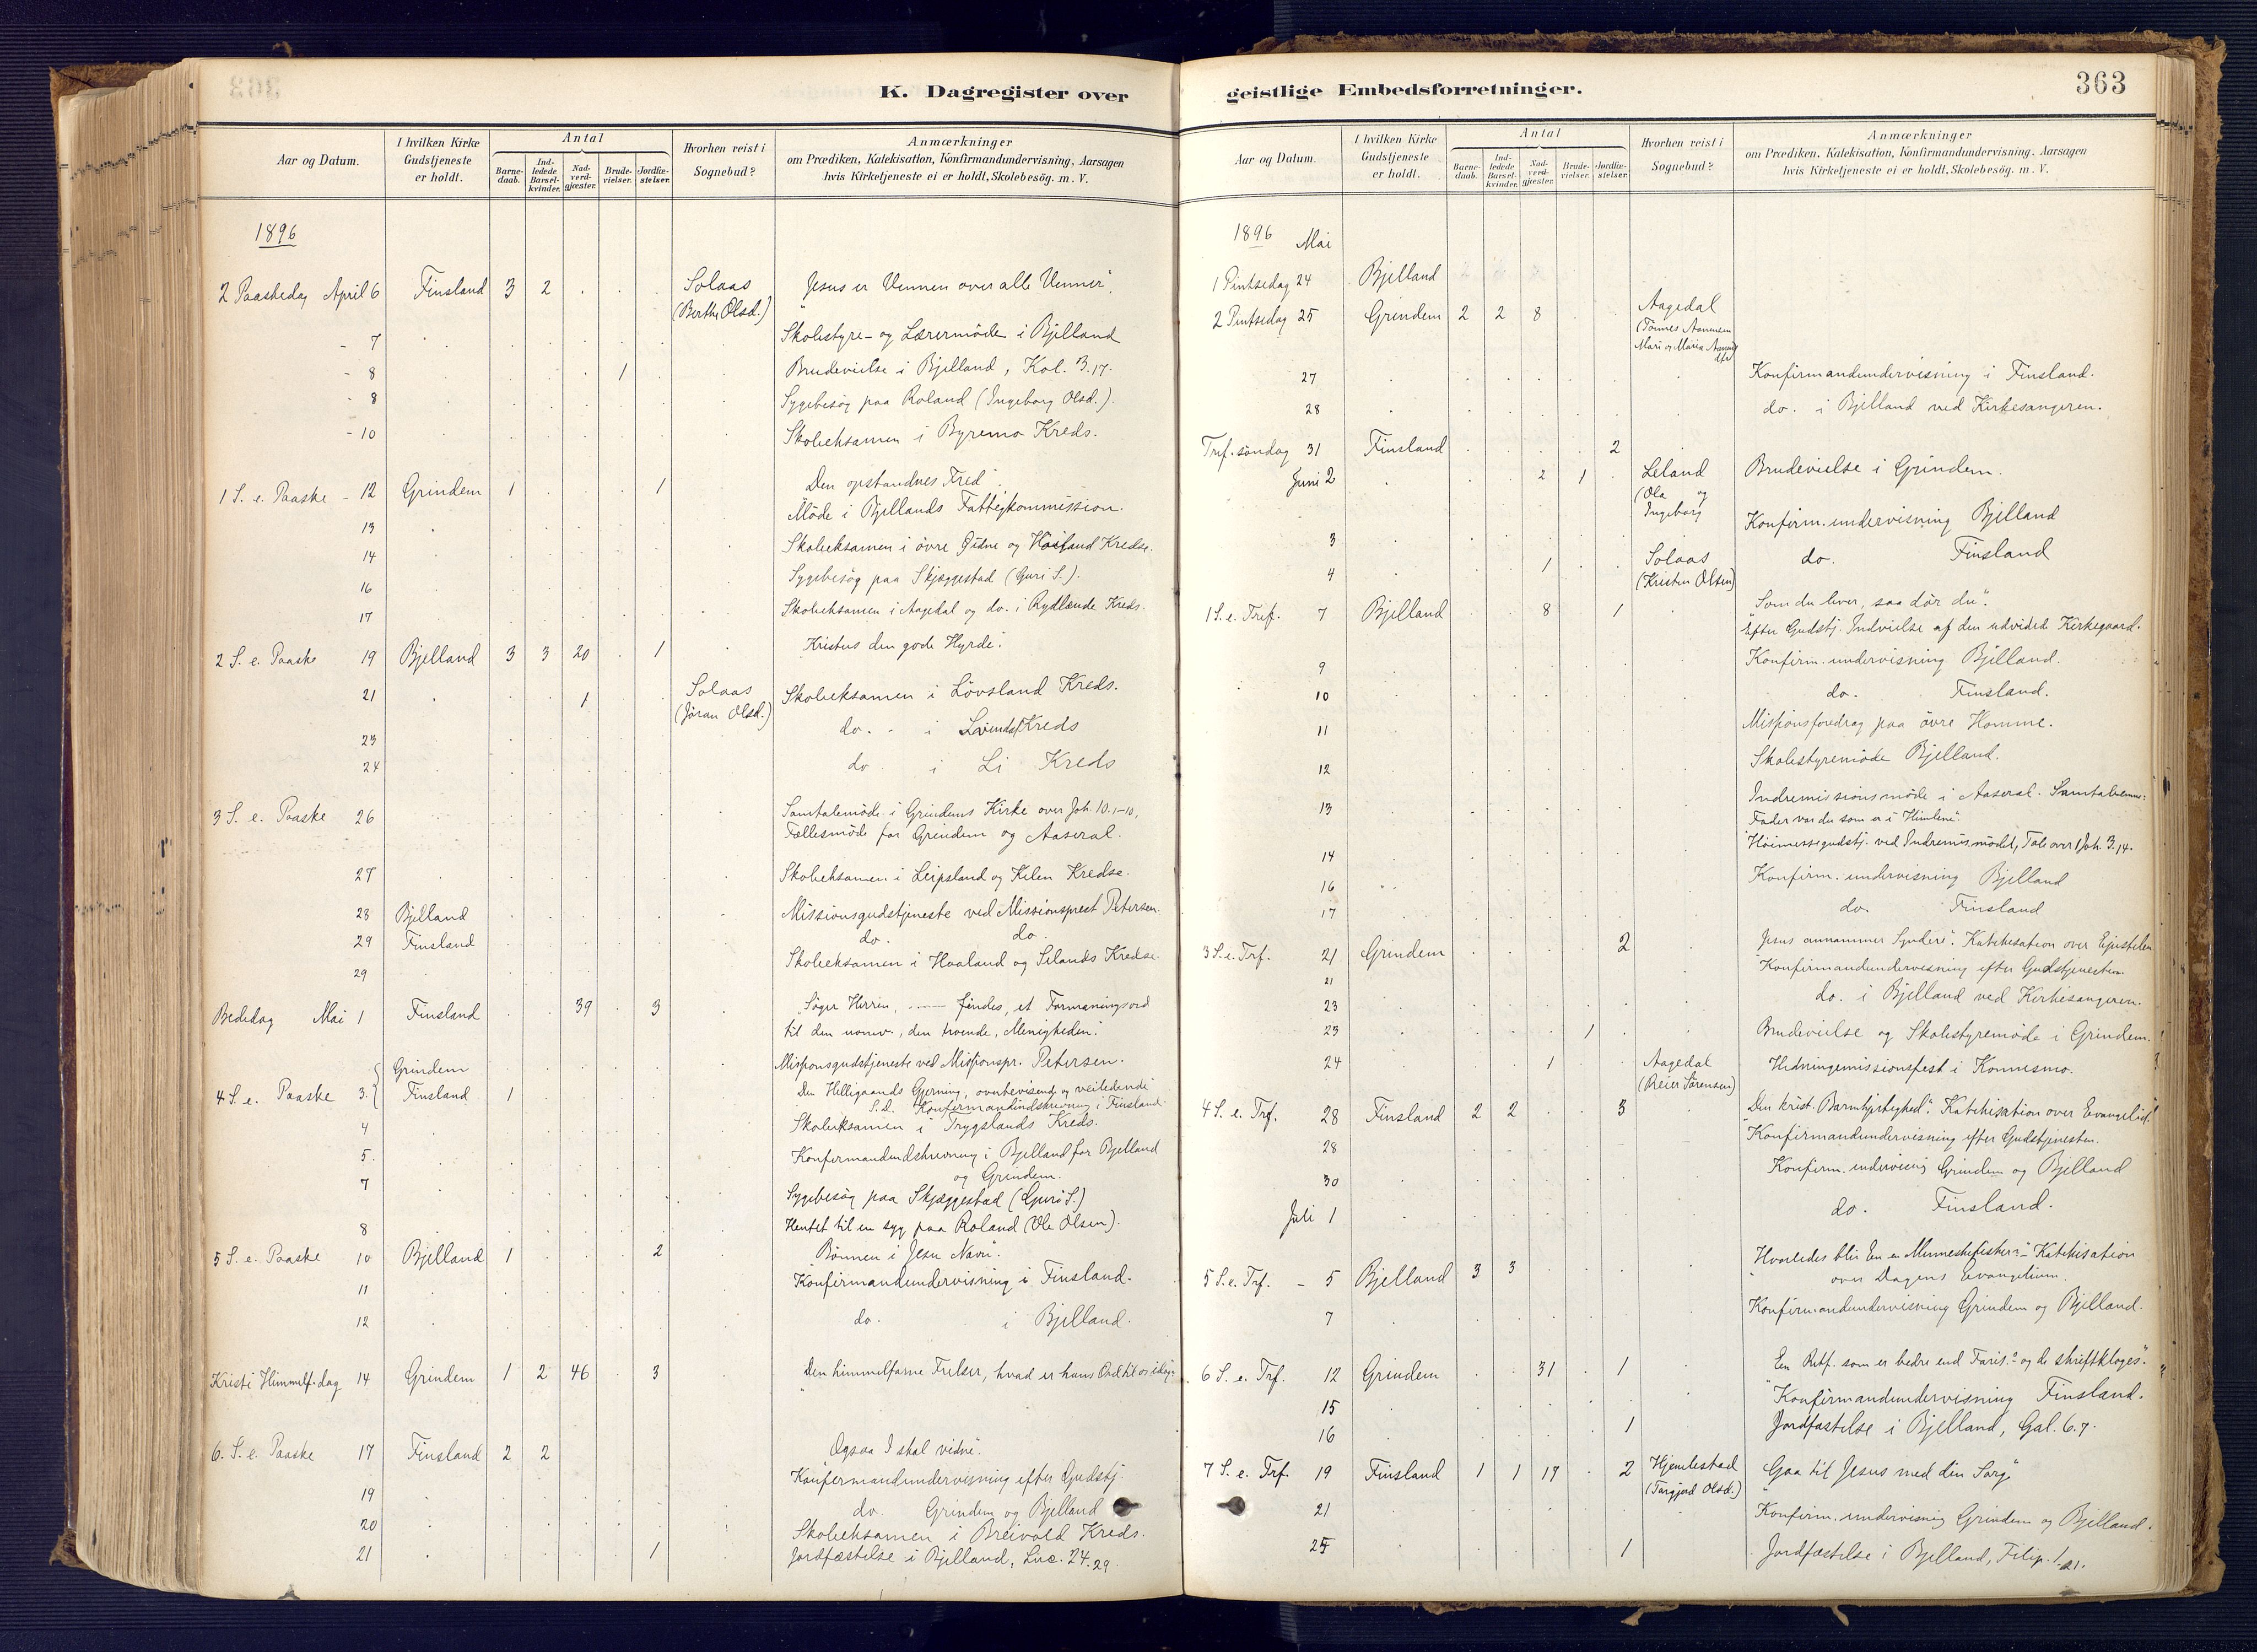 K. Dagregister over
Aar og Datum.
I hvilken Kirke Gudstjeneste er holdt.
Antal
Barne-daab.
Ind-ledede Barsel-kvinder.
Nad-verd-gjæster.
Brude-vielser.
Jordfæ-stelser.
Hvorhen reist i Sognebud?
Anmærkninger
om Prædiken, Katekisation, Konfirmandundervisning, Aarsagen
hvis Kirketjeneste ei er holdt, Skolebesög. m. V.
1896
2 Paaskedag April 6 Finsland 3 2 . . . Solaas "Jesus er Vennen over alle Venner".
(Berthe Olsd.)
- 7 Skolestyre- og Lærermöde i Bjelland
- 8 1 Brudevielse i Bjelland, Kol. 3.17.
- 8 Sygebesög paa Roland (Ingeborg Olsd.).
- 10 Skoleeksamen i Byremo Kreds.
1 S. e. Paaske - 12 Grindem 1 1 "Den opstandnes Fred".
Möde i Bjellands Fattigkommission.
13
14 Skoleeksamen i övre Öidne og Kredse.
16 Sygebesög paa Skjæggestad (Guri S.).
17 Skoleeksamen i Aagedal og do. i Rydlænde Kreds.
2 S. e. Paaske 19 Bjelland 3 3 20 . 1 "Kristus den gode Hyrde".
21 1 Solaas Skoleeksamen i Lövsland Kreds.
(Jöran Olsd.)
23 do. - i Kreds
24 do. i Li Kreds
3 S. e. Paaske 26 Samtalemöde i Grindems Kirke over Joh. 10.1-10,
Fællesmöde for Grindem og Aaseral.
27 Skoleeksamen i Leipsland og Kilen Kredse.
28 Bjelland Missionsgudstjeneste ved Missionsprest Petersen.
29 Finsland do. do.
29 Skoleeksamen i Haaland og Silands Kredse.
Bededag Mai 1 Finsland 39 3 "Söger Herren, —— findes, et Formaningsord
til den uomv., den troende, Menigheden".
Grindem Missionsgudstjeneste ved Missionspr. Petersen.
4 S. e. Paaske 3. Finsland 1 "Den Helligaands Gjerning, overbevisende og veiledende"
S.D. Konfirmandindskrivning i Finsland.
4 Skoleeksamen i Trygslands Kreds.
5. Konfirmandindskrivning i Bjelland for Bjelland
og Grindem.
7 Sygebesög paa Skjæggestad (Guri S.)
8 Hentet til en syg paa Roland (Ole Olsen).
5 S. e. Paaske 10 Bjelland 1 2 "Bönnen i Jesu Navn".
11 Konfirmandundervisning i Finsland.
12 do. i Bjelland.
Kristi Himmelf. dag 14 Grindem 1 2 46 . 3 "Den himmelfarne Frelser, hvad er hans Ord til os idag?
6. S. e. Paaske 17 Finsland 2 2 "Ogsaa I skal vidne".
Konfirmandundervisning efter Gudstj.
19 do. Grindem og Bjelland
20 Skoleeksamen i Breivold Kreds.
21 1 Jordfæstelse i Bjelland, Luc. 24.29.
geistlige Embedsforretninger.
363
Aar og Datum.
I hvilken Kirke Gudstjeneste er holdt.
Antal
Barne-daab.
Ind-ledede Barsel-kvinder.
Nad-verd-gjæster.
Brude-vielser.
Jordfæ-stelser.
Hvorhen reist i Sognebud?
Anmærkninger
om Prædiken, Katekisation, Konfirmandundervisning, Aarsagen
hvis Kirketjeneste ei er holdt, Skolebesög. m. V.
1896 Mai
1 Pintsedag 24 Bjelland
2 Pintsedag 25 Grindem 2 2 8 Aagedal
(Tönnes Aanensen
Mari og Maria
27 Konfirmandundervisning i Finsland.
28 do. i Bjelland ved Kirkesangeren.
Tref. söndag 31 Finsland 2
Juni 2 2 1 Leland Brudevielse i Grindem.
(Ola og
Ingeborg
3 Konfirm. undervisning Bjelland
4 1 Solaas do. Finsland
(Kristen Olsen)
1 S. e. Tref. 7 Bjelland 8 1 "Som du lever, saa dör du".
Efter Gudstj. Indvielse af den udvidede Kirkegaard.
9 Konfirm. undervisning Bjelland.
10 do. Finsland.
11 Missionsforedrag paa övre Homme.
12 Skolestyremöde Bjelland.
13 Indremissionsmöde i Aaseral. Samtaleemne:
Fader vor du som er i Himlene".
14 Höimessegudstj. ved Indremis.mödet, Tale over 1 Joh. 3.14.
16 Konfirm. undervisning Bjelland
17 do. Finsland
3 S. e. Trf. 21 Grindem 2 "Jesus annammer Syndere". Katekisation over Epistelen
21 Konfirmandundervisning efter Gudstjenesten.
23 do. i Bjelland ved Kirkesangeren.
23 1 Brudevielse og Skolestyremöde i Grindem.
24 1 Aagedal Hedningemissionsfest i Konnesmo.
(Reier Sörensen)
4 S. e. Trf. 28 Finsland 2 2 3 "Den krist. Barmhjertighed". Katekisation over Evangeliet.
28 Konfirmandundervisning efter Gudstjenesten.
30 Konfirm. undervisnig Grindem og Bjelland
Juli 1 do. Finsland.
5 S. e. Trf. - 5 Bjelland 3 3 "Hvorledes blir En en Menneskefisker?" Katekisation
over Dagens Evangelium.
7 Konfirmandundervisning Grindem og Bjelland.
6 S. e. Trf. 12 Grindem 31 1 "En Retf. som er bedre end Faris. og de skriftkloges".
15 Konfirmandundervisning Finsland.
16 1 Jordfæstelse i Bjelland, Gal. 6.7.
7 S. e. Trf. 19 Finsland 1 1 17 . 2 Hjemlestad "Gaa til Jesus med din Sorg"
(Torgjerd Olsd.)
21 Konfirm. undervisnig Grindem og Bjelland.
25 1 Jordfæstelse i Bjelland, Filip. 1.21.